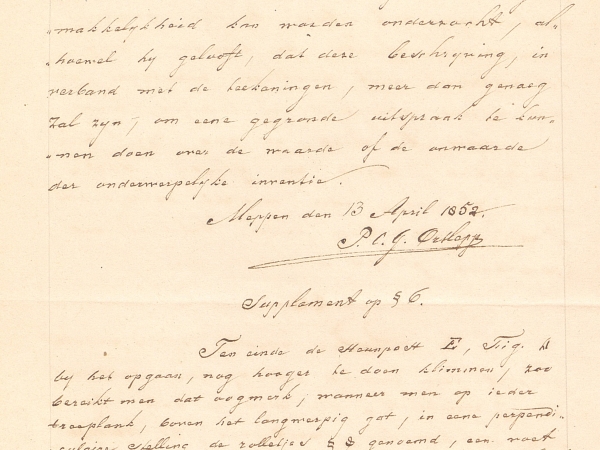 „makkelijkheid kan worden onderzocht, al„
„hoewel hy gelooft, dat deze beschryving, in
verband met de teekeningen, meer dan genoeg
zal zyn, om eene gegronde uitspraak te kun„
„nen doen over de waarde of de onwaarde
der onderwerpelyke inventie.
Meppen den 13 April 1852.
P. C. G.
Supplement op § 6.
Ten einde de Steunpost E, Fig.
by het opgaan, nog hooger te doen klimmen, zoo
bereikt men dat oogmerk, wanneer men op ieder
boven het langwerpig gat, in eene perpendi„
stelling de rolletjes § 8 genoemd, een voet